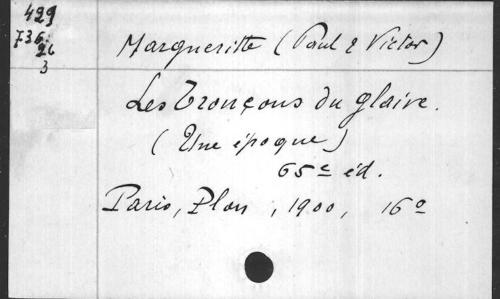 429
736.
26
3
Margueritte (Paul & Victor)
Les Tronçons du glaive.
(Une époque)
65e éd.
Paris, Plon, 1900, 16o